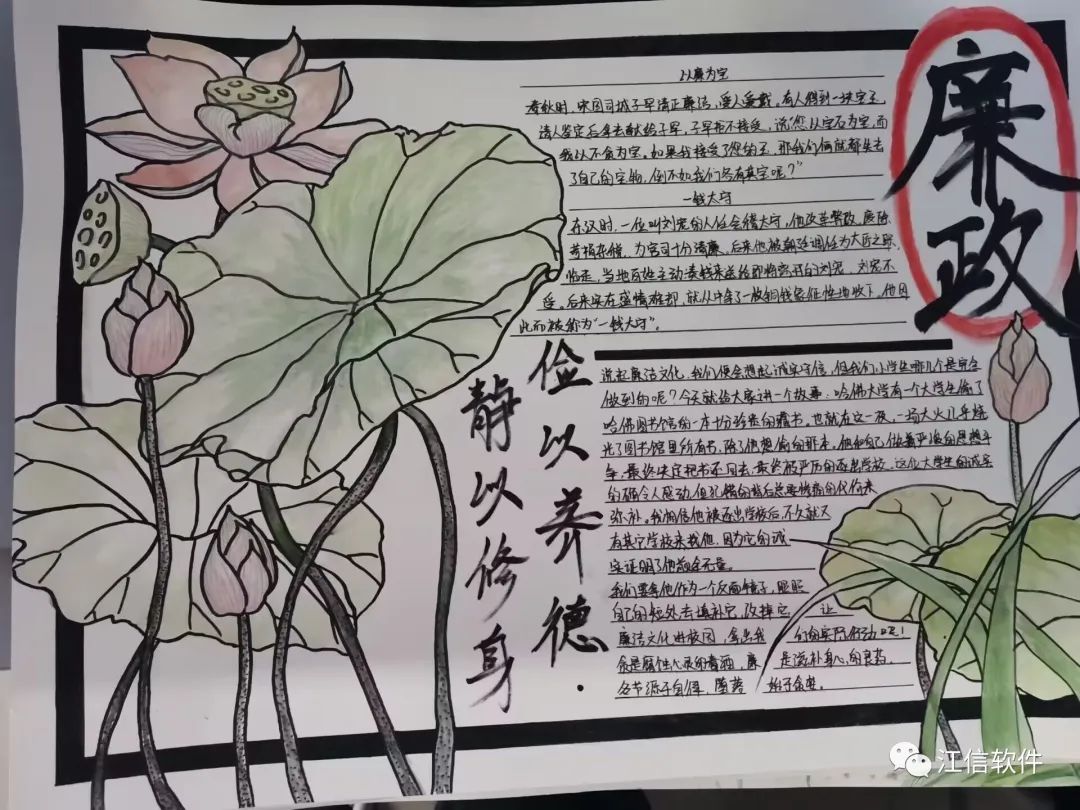 廉政
以廉为宝
春秋时,宋国司城子罕清正廉洁,受人爱戴。有人得到一块宝玉,
请人鉴定后拿去献给子罕,子罕拒不接受,说"您以宝石为宝,而
我以不贪为宝。如果我接受了您的玉,那我们俩就都失去
了自己的宝物,倒不如我们各有其宝呢?"
一钱太守
在汉时,一位叫刘宠的人任会稽太守,他改革弊政,废除
苛捐杂税,为官十分清廉。后来他被朝廷调任为大匠之职,
临走,当地百姓主动凑钱来送给即将离开的刘宠,刘宠不
受。后来实在盛情难却,就从中拿了一枚铜钱象征性地收下。他因
此而被称为"一钱太守"。
俭以养德.
静以修身
说起廉洁文化,我们便会想起诚实守信,但我们小学生哪几个是完全
做到的呢?今天就给大家讲一个故事,哈佛大学有一个大学生偷了
哈佛图书馆的一本十分珍贵的藏书。也就在这一夜,一场大火几乎烧
光了图书馆里所有书,除了他想偷的那本,他和自己做着严峻的思想斗
争,最终决定把书还回去,最终被严厉的逐出学校。这位大学生的诚实
的确令人感动,但犯错的背后总要惨痛的代价来
弥补。我相信他被逐出学校后,不久就又
有其它学校来找他,因为它的诚
实证明了他
我们要拿他作为一个反面镜子,照照
自己的短处去填补它,改掉它 让
廉洁文化进校园,拿出我 们的实际行动吧!
贪是腐蚀人灵的毒酒,廉 是滋补身心的良药,
名节源于自律,堕落 始于贪婪。
江信软件